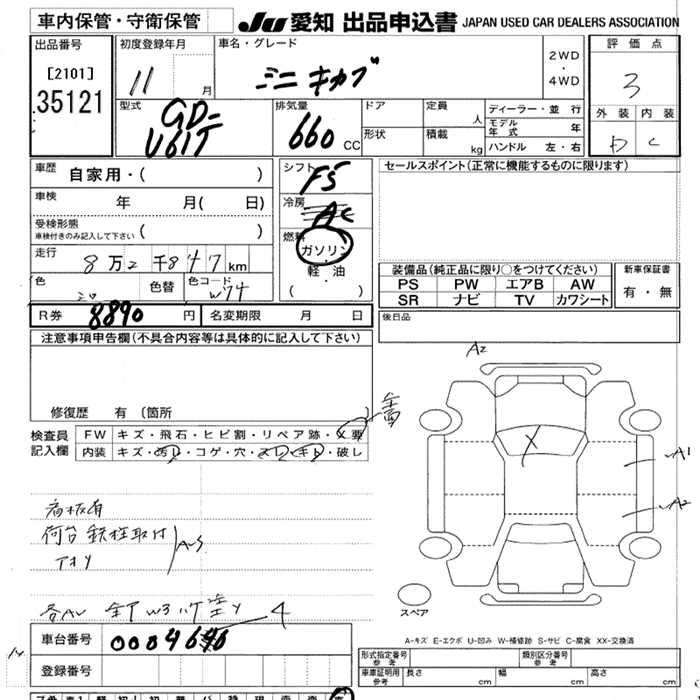 車内保管・守衛保管
JU 愛知 出品申込書 JAPAN USED CAR DEALERS ASSOCIATION
出品番号
[2101]
35121
初度登録年月
11 月
車名・グレード
ミニキャブ
2WD
・
4WD
評価点
3
外装 内装
D C
型式
GD-
U61T
排気量
660 CC
ドア
形状
定員 人
積載 kg
ディーラー・並行
モデル年式 年
ハンドル 左・右
車歴
自家用・( )
車検 年 月( 日)
受検形態
車検付きのみ記入して下さい ( )
走行
8万2千847km
色
色替
色コード
W74
シフト
F5
冷房
AC
燃料
ガソリン
・
軽油
・
( )
セールスポイント(正常に機能するものに限ります)
装備品(純正品に限り○をつけてください)
PS PW エアB AW
SR ナビ TV カワシート
新車保証書
有・無
R券 8890円 名変期限 月 日
後日品
注意事項申告欄(不具合内容等は具体的に記入して下さい)
修復歴 有 (箇所
検査員
記入欄
FW キズ・飛石・ヒビ割・リペア跡・X要
内装 キズ・汚レ・コゲ・穴・スレ・キレ・破レ
A2
A1
A2
X
看板有
荷台鉄柱取付
スペア
A-キズ E-エクボ U-凹み W-補修跡 S-サビ C-腐食 XX-交換済
車台番号
登録番号
形式指定番号
参考
類別区分番号
参考
車庫証明用
参考
長さ cm
幅 cm
高さ cm